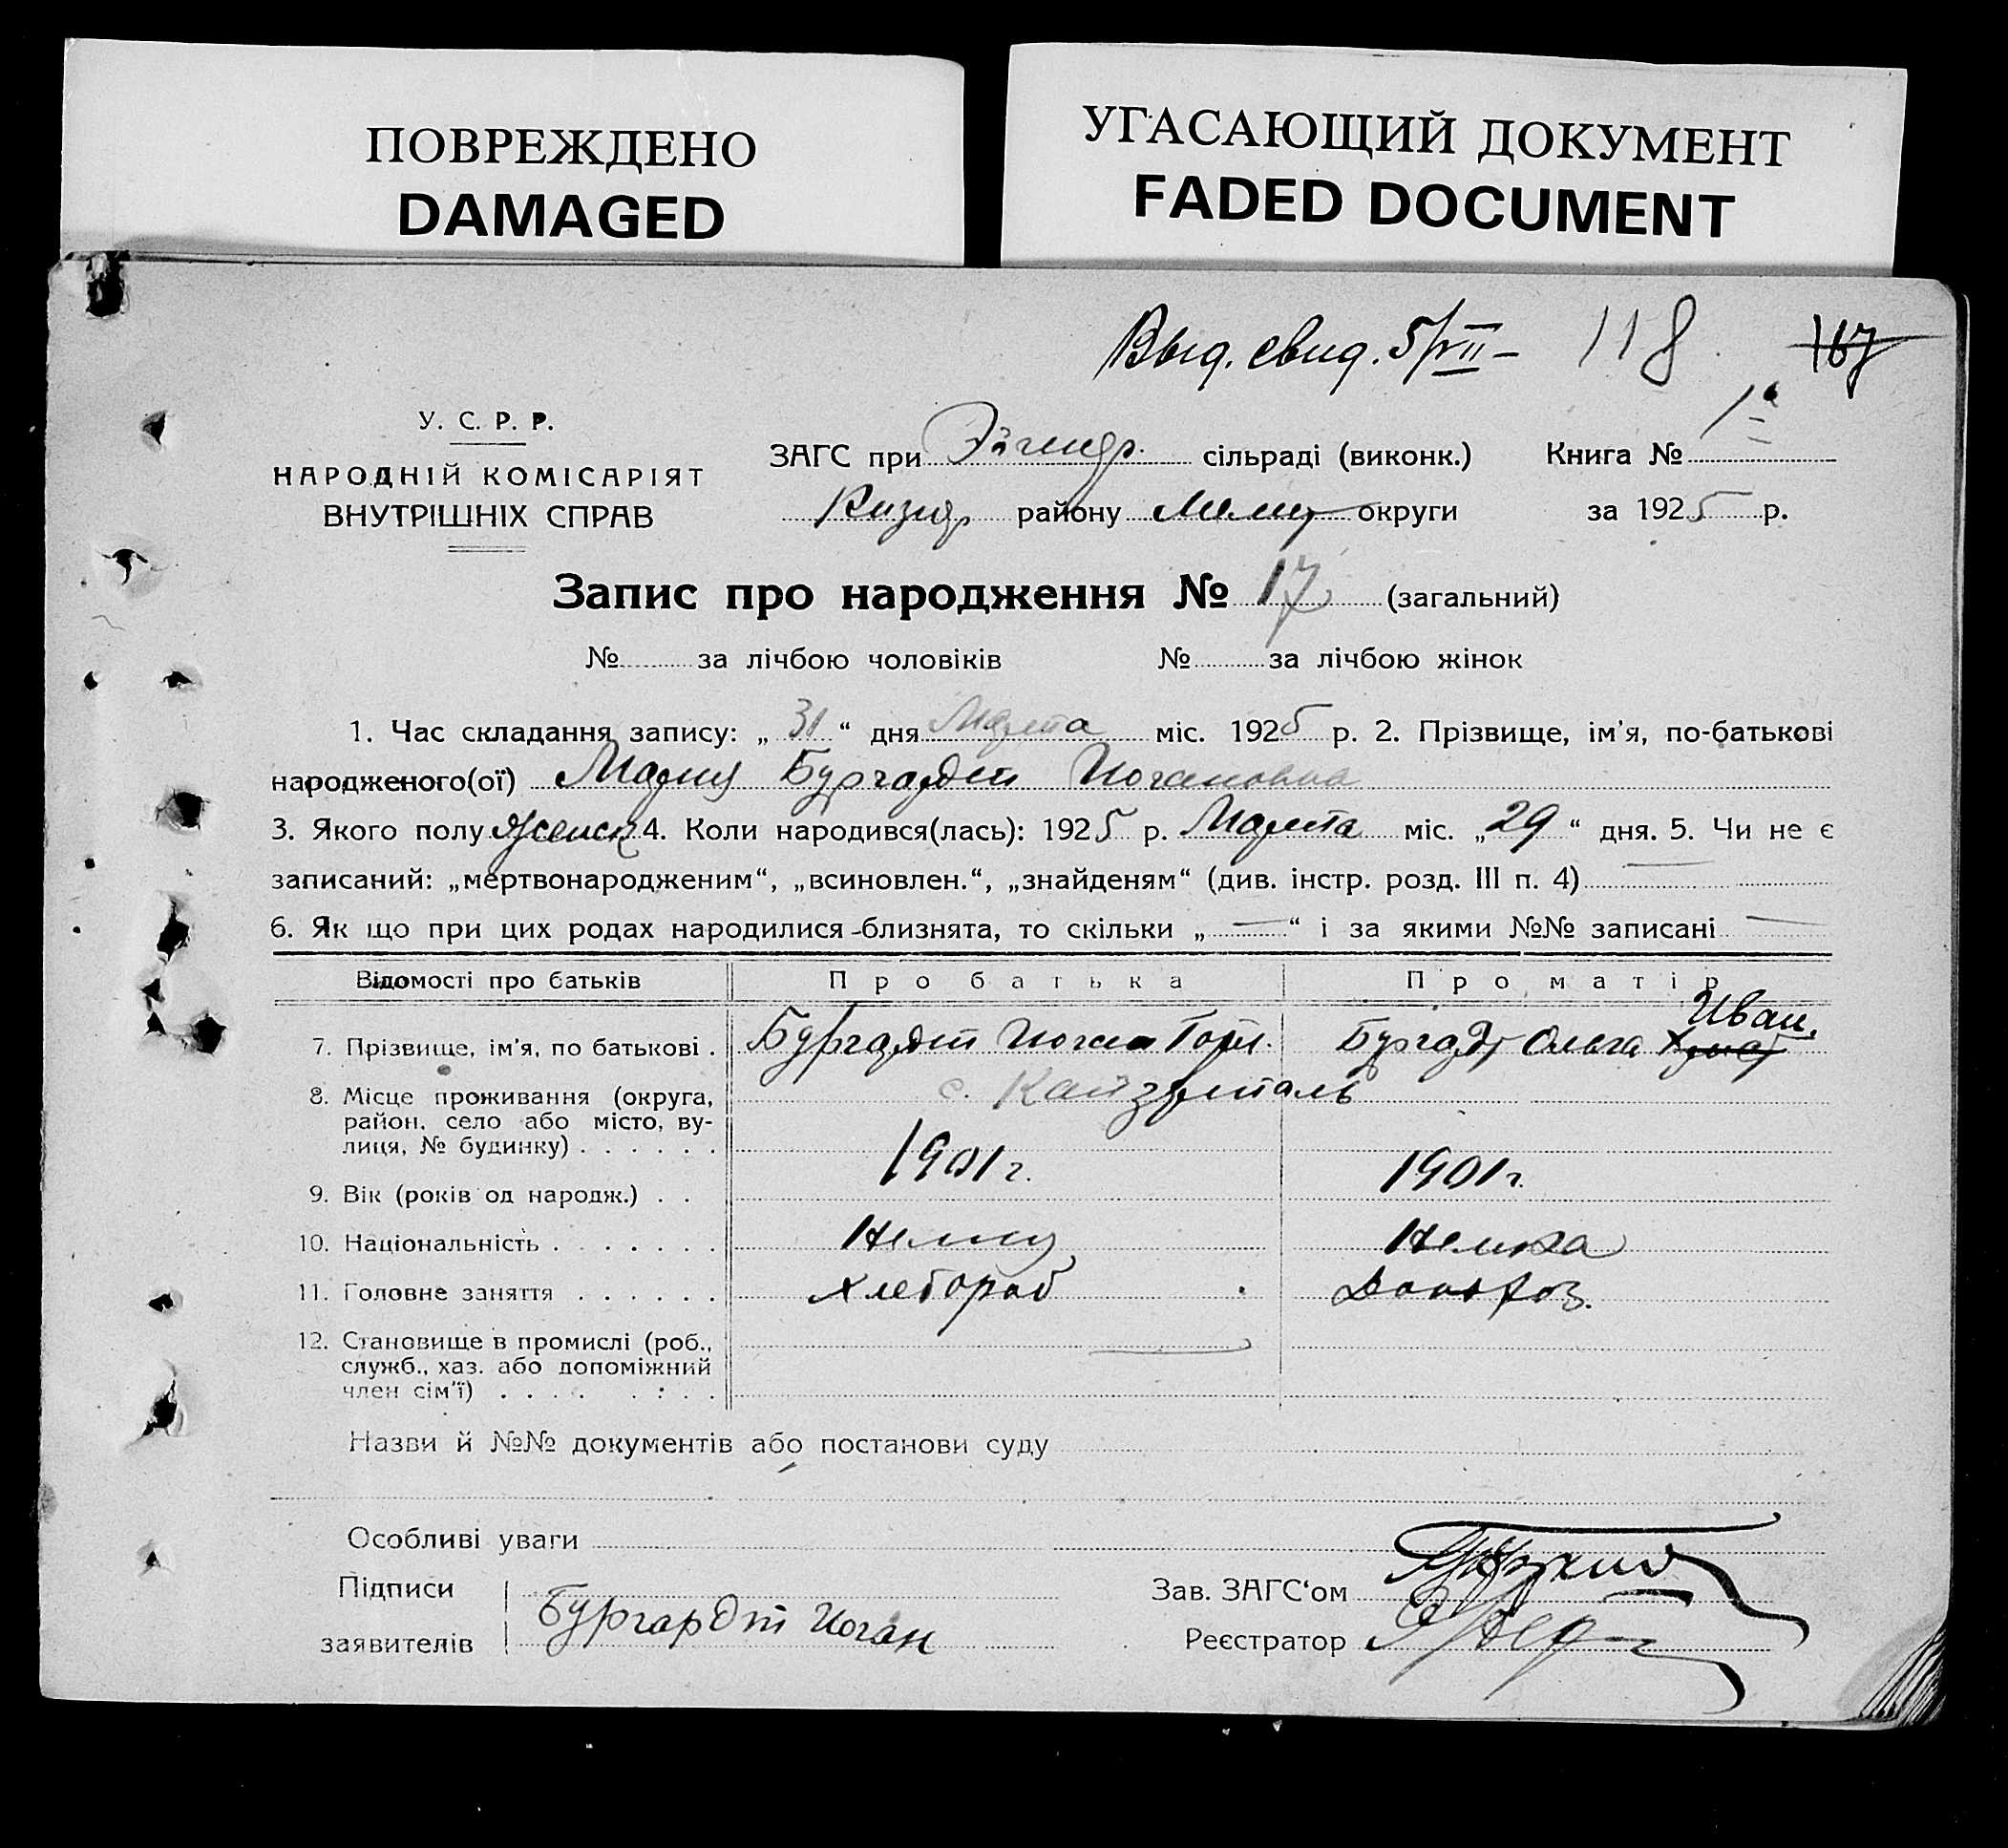 ПОВРЕЖДЕНО
DAMAGED
УГАСАЮЩИЙ ДОКУМЕНТ
FADED DOCUMENT
Выд. свид. 5/VII – 118 167
У. С. Р. Р.
НАРОДНІЙ КОМІСАРІЯТ
ВНУТРІШНІХ СПРАВ
ЗАГС при Эйгенф. сільраді (виконк.) Книга № 1а
района округи за 1925 р.
Запис про народження № 17 (загальний)
№ за лічбою чоловіків № за лічбою жінок
1. Час складання запису: „ 31 “ дня Марта міс. 1925 р. 2. Прізвище, ім'я, по-батькові
народженого(ої) Мария Бургардт Иогановна
3. Якого полу женск 4. Коли народився(лась): 1925 р. Марта міс. „29“ дня. 5. Чи не є
записаний: „мертвонародженим“, „всиновлен.“, „знайденям“ (див. інстр. розд. III п. 4) —
6. Як що при цих родах народилися близнята, то скільки „ — “ і за якими №№ записані —
Відомості про батьків Про батька Про матір
7. Прізвище, ім'я, по батькові . Бургардт Иоган Готл. Бургардт Ольга Иван.
8. Місце проживання (округа, с. Кайзерталь
район, село або місто, ву-
лиця, № будинку) . . . . . .
9. Вік (років од народж.) . . 1901 г. 1901 г.
10. Національність . . . . . . . Немец Немка
11. Головне заняття . . . . . . Хлебороб Домохоз.
12. Становище в промислі (роб.,
служб., хаз. або допоміжний
член сім'ї) . . . . . : . .
Назви й №№ документів або постанови суду
Особливі уваги
Підписи
заявителів Бургардт Иоган
Зав. ЗАГС‘ом
Реєстратор